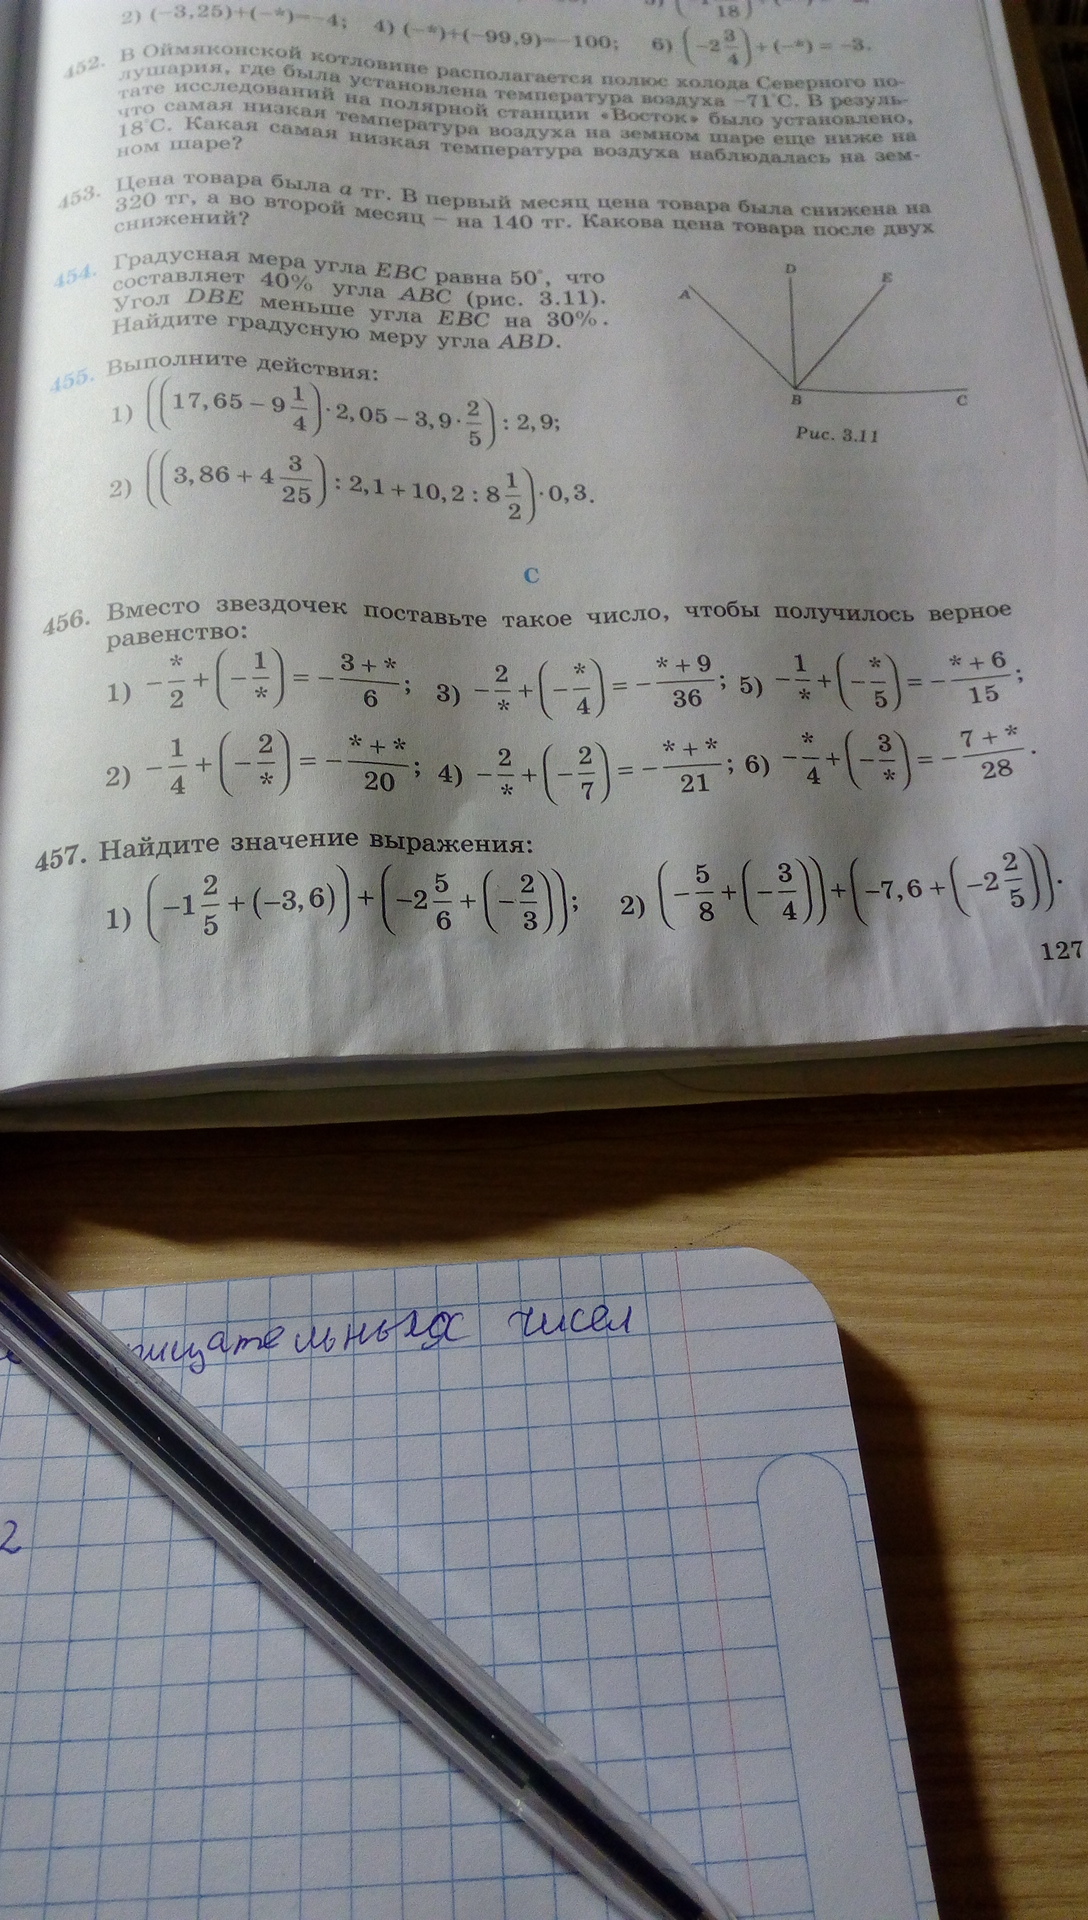 2) (−3,25)+(−*)=−4; 4) (−*)+(−99,9)=−100; 6) (−2 3/4) + (−*) = −3.
452. В Оймяконской котловине располагается полюс холода Северного по-
лушария, где была установлена температура воздуха −71°С. В резуль-
тате исследований на полярной станции «Восток» было установлено,
что самая низкая температура воздуха на земном шаре еще ниже на
18°С. Какая самая низкая температура воздуха наблюдалась на зем-
ном шаре?
453. Цена товара была a тг. В первый месяц цена товара была снижена на
320 тг, а во второй месяц – на 140 тг. Какова цена товара после двух
снижений?
454. Градусная мера угла EBC равна 50°, что
составляет 40% угла ABC (рис. 3.11).
Угол DBE меньше угла EBC на 30%.
Найдите градусную меру угла ABD.
A D E B C
Рис. 3.11
455. Выполните действия:
1) ((17,65 − 9 1/4) · 2,05 − 3,9 · 2/5) : 2,9;
2) ((3,86 + 4 3/25) : 2,1 + 10,2 : 8 1/2) · 0,3.
С
456. Вместо звездочек поставьте такое число, чтобы получилось верное
равенство:
1) −*/2 + (−1/*) = −(3 + *)/6; 3) −2/* + (−*/4) = −(* + 9)/36; 5) −1/* + (−*/5) = −(* + 6)/15;
2) −1/4 + (−2/*) = −(* + *)/20; 4) −2/* + (−2/7) = −(* + *)/21; 6) −*/4 + (−3/*) = −(7 + *)/28.
457. Найдите значение выражения:
1) (−1 2/5 + (−3,6)) + (−2 5/6 + (−2/3)); 2) (−5/8 + (−3/4)) + (−7,6 + (−2 2/5)).
127
чисел
2